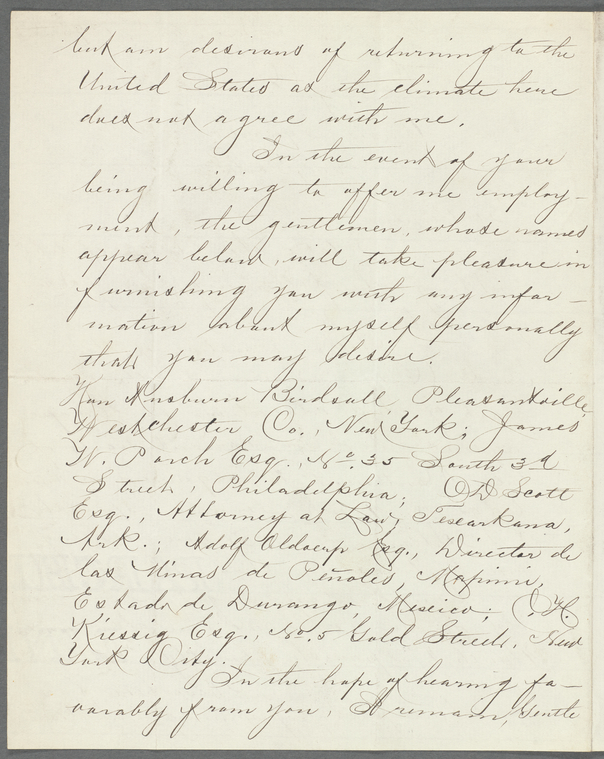 but am desirous of returning to the
United States as the climate here
does not agree with me.
In the event of your
being willing to offer me employ-
ment, the gentlemen, whose names
appear below, will take pleasure in
furnishing you with any infor-
mation about myself personally
that you may desire.
Hon Ausburn Birdsall, Pleasantville,
Westchester Co., New York; James
W. Porch Esq., No. 35 South 3d
Street, Philadelphia; O D Scott
Esq., Attorney at Law, Texarkana,
Ark.; Adolf Oldoerp Esq., Director de
las Minas de Peñoles, Mapimi,
Estado de Durango, Mexico; O. H.
Kiessig Esq., No. 5 Gold Street, New
York City.
In the hope of hearing fa-
vorably from you, I remain, Gentle